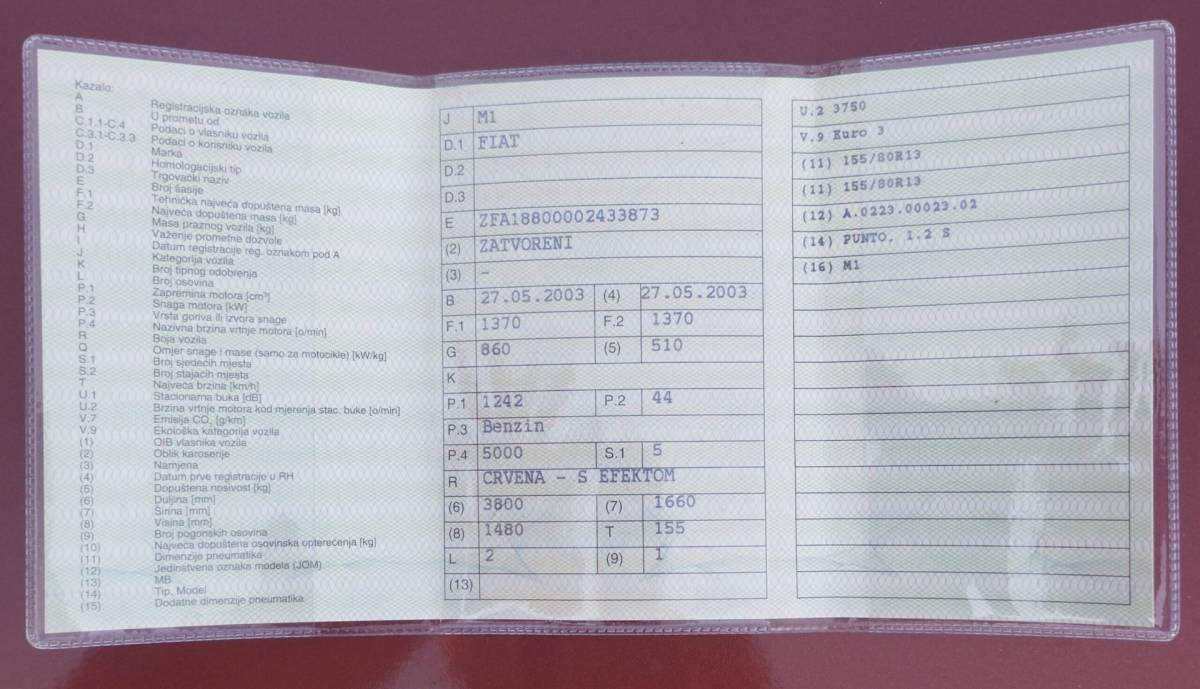 Kazalo:
A Registracijska oznaka vozila
B U prometu od
C.1.1-C.4 Podaci o vlasniku vozila
C.3.1-C.3.3 Podaci o korisniku vozila
D.1 Marka
D.2 Homologacijski tip
D.3 Trgovački naziv
E Broj šasije
F.1 Tehnička najveća dopuštena masa [kg]
F.2 Najveća dopuštena masa [kg]
G Masa praznog vozila [kg]
H Važenje prometne dozvole
I Datum registracije reg. oznakom pod A
J Kategorija vozila
K Broj tipnog odobrenja
L Broj osovina
P.1 Zapremina motora [cm³]
P.2 Snaga motora [kW]
P.3 Vrsta goriva ili izvora snage
P.4 Nazivna brzina vrtnje motora [o/min]
R Boja vozila
Q Omjer snage i mase (samo za motocikle) [kW/kg]
S.1 Broj sjedećih mjesta
S.2 Broj stajaćih mjesta
T Najveća brzina [km/h]
U.1 Stacionarna buka [dB]
U.2 Brzina vrtnje motora kod mjerenja stac. buke [o/min]
V.7 Emisija CO₂ [g/km]
V.9 Ekološka kategorija vozila
(1) OIB vlasnika vozila
(2) Oblik karoserije
(3) Namjena
(4) Datum prve registracije u RH
(5) Dopuštena nosivost [kg]
(6) Duljina [mm]
(7) Širina [mm]
(8) Visina [mm]
(9) Broj pogonskih osovina
(10) Najveća dopuštena osovinska opterećenja [kg]
(11) Dimenzije pneumatika
(12) Jedinstvena oznaka modela (JOM)
(13) MB
(14) Tip, Model
(15) Dodatne dimenzije pneumatika
J M1
D.1 FIAT
D.2
D.3
E ZFA18800002433873
(2) ZATVORENI
(3) –
B 27.05.2003 (4) 27.05.2003
F.1 1370 F.2 1370
G 860 (5) 510
K
P.1 1242 P.2 44
P.3 Benzin
P.4 5000 S.1 5
R CRVENA – S EFEKTOM
(6) 3800 (7) 1660
(8) 1480 T 155
L 2 (9) 1
(13)
U.2 3750
V.9 Euro 3
(11) 155/80R13
(11) 155/80R13
(12) A.0223.00023.02
(14) PUNTO, 1.2 S
(16) M1